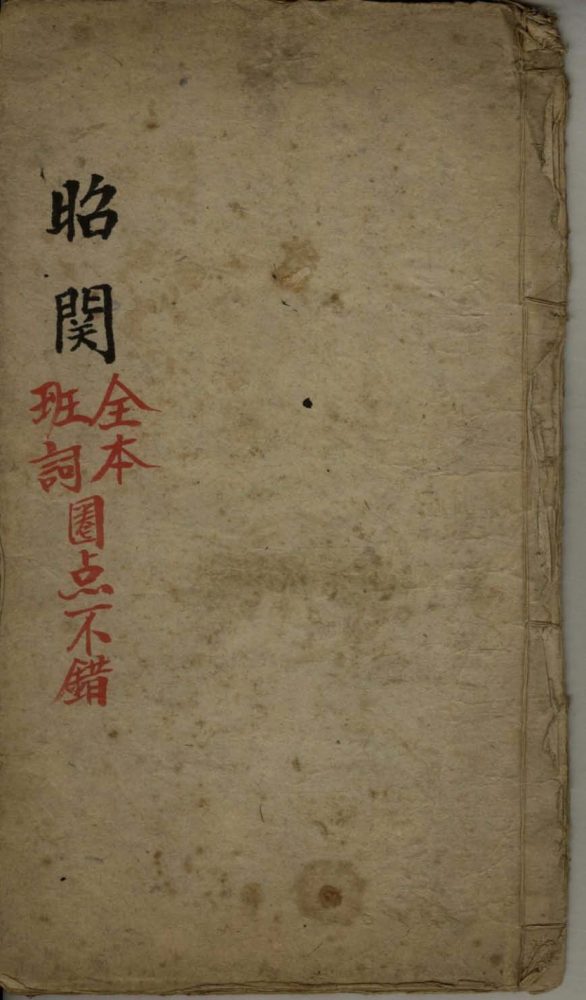 昭関
全本
班詞
圏点不錯